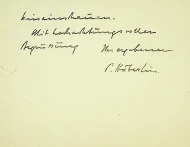 hineinschauen.
Mit hochachtungsvoller
Begrüssung Ihr ergebener
P. Häberlin.